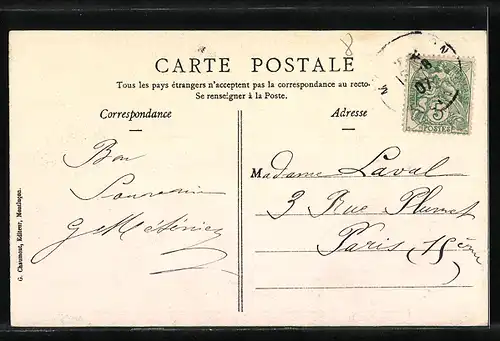 8
CARTE POSTALE
Tous les pays étrangers n'acceptent pas la correspondance au recto-
Se renseigner à la Poste.
Correspondance
Adresse
Bon
Souvenir
G Méténier
Madame Laval
3 Rue Plumet
Paris 15ème
G. Chaumont, Editeur, Montluçon.
07
5c
POSTES